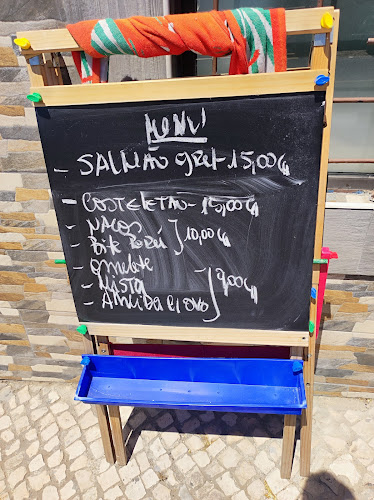 MENU
- SALMÃO grel - 15,00€
- COSTELETÃO - 15,00€
- NACOS
- Bife Perú } 10,00€
- Omelete
- Mista
- AMEIJOA E OVO } 9,00€